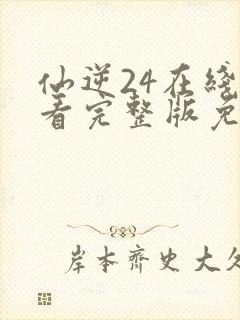 仙逆24在线
看完整版免
岸本齐史大久